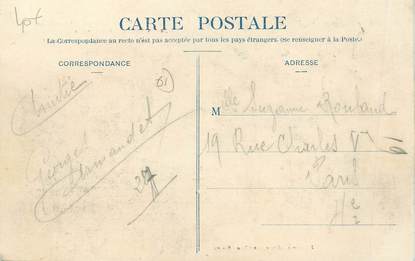 Lot
CARTE POSTALE
La Correspondance au recto n'est pas acceptée par tous les pays étrangers. (Se renseigner à la Poste.)
CORRESPONDANCE
ADRESSE
61
Amitié
Georges
Mlle Suzanne Rouland
19 Rue Charles V
Paris
4e